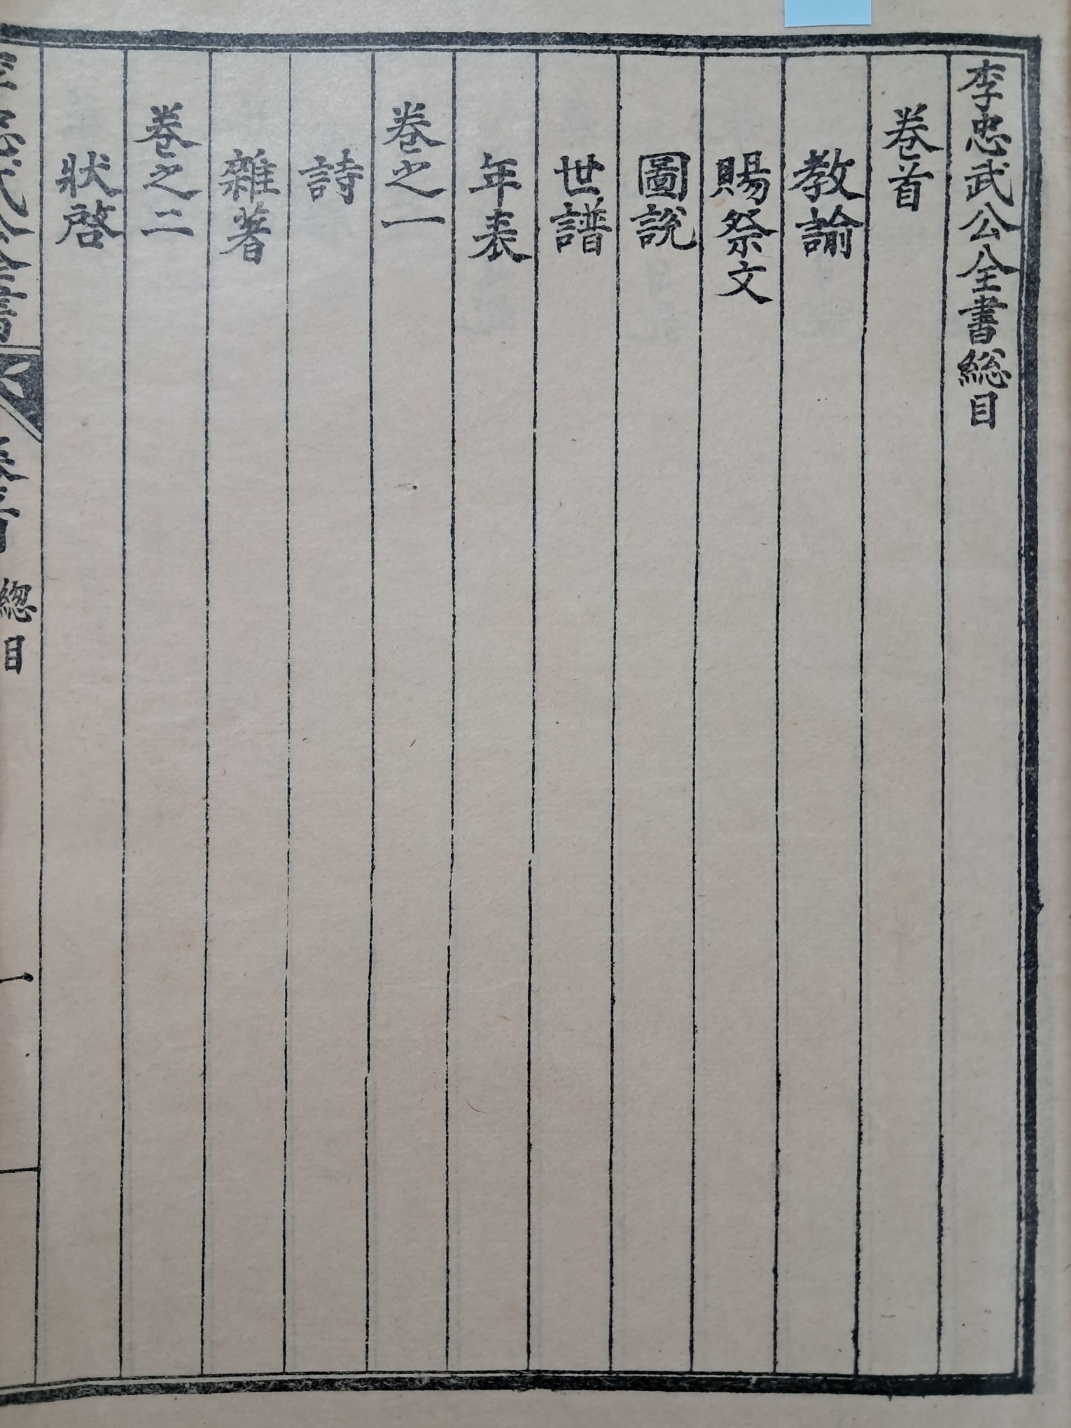 李忠武公全書総目
卷首
教諭
賜祭文
圖說
世譜
年表
卷之一
詩
雜著
卷之二
狀啓
李忠武公全書
卷首
總目
一